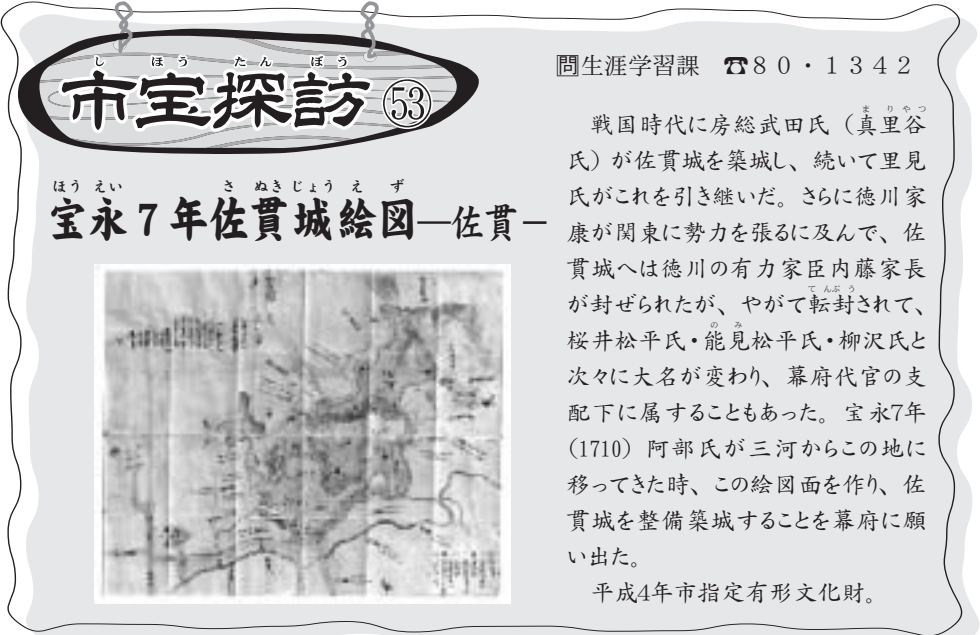 市宝探訪 53
し ほう たん ぼう
宝永7年佐貫城絵図―佐貫－
ほう えい さ ぬき じょう え ず
問生涯学習課 ☎80・1342
戦国時代に房総武田氏（真里谷
まりやつ
氏）が佐貫城を築城し、続いて里見
氏がこれを引き継いだ。さらに徳川家
康が関東に勢力を張るに及んで、佐
貫城へは徳川の有力家臣内藤家長
が封ぜられたが、やがて転封されて、
てんぷう
桜井松平氏・能見松平氏・柳沢氏と
のみ
次々に大名が変わり、幕府代官の支
配下に属することもあった。宝永7年
(1710) 阿部氏が三河からこの地に
移ってきた時、この絵図面を作り、佐
貫城を整備築城することを幕府に願
い出た。
平成4年市指定有形文化財。